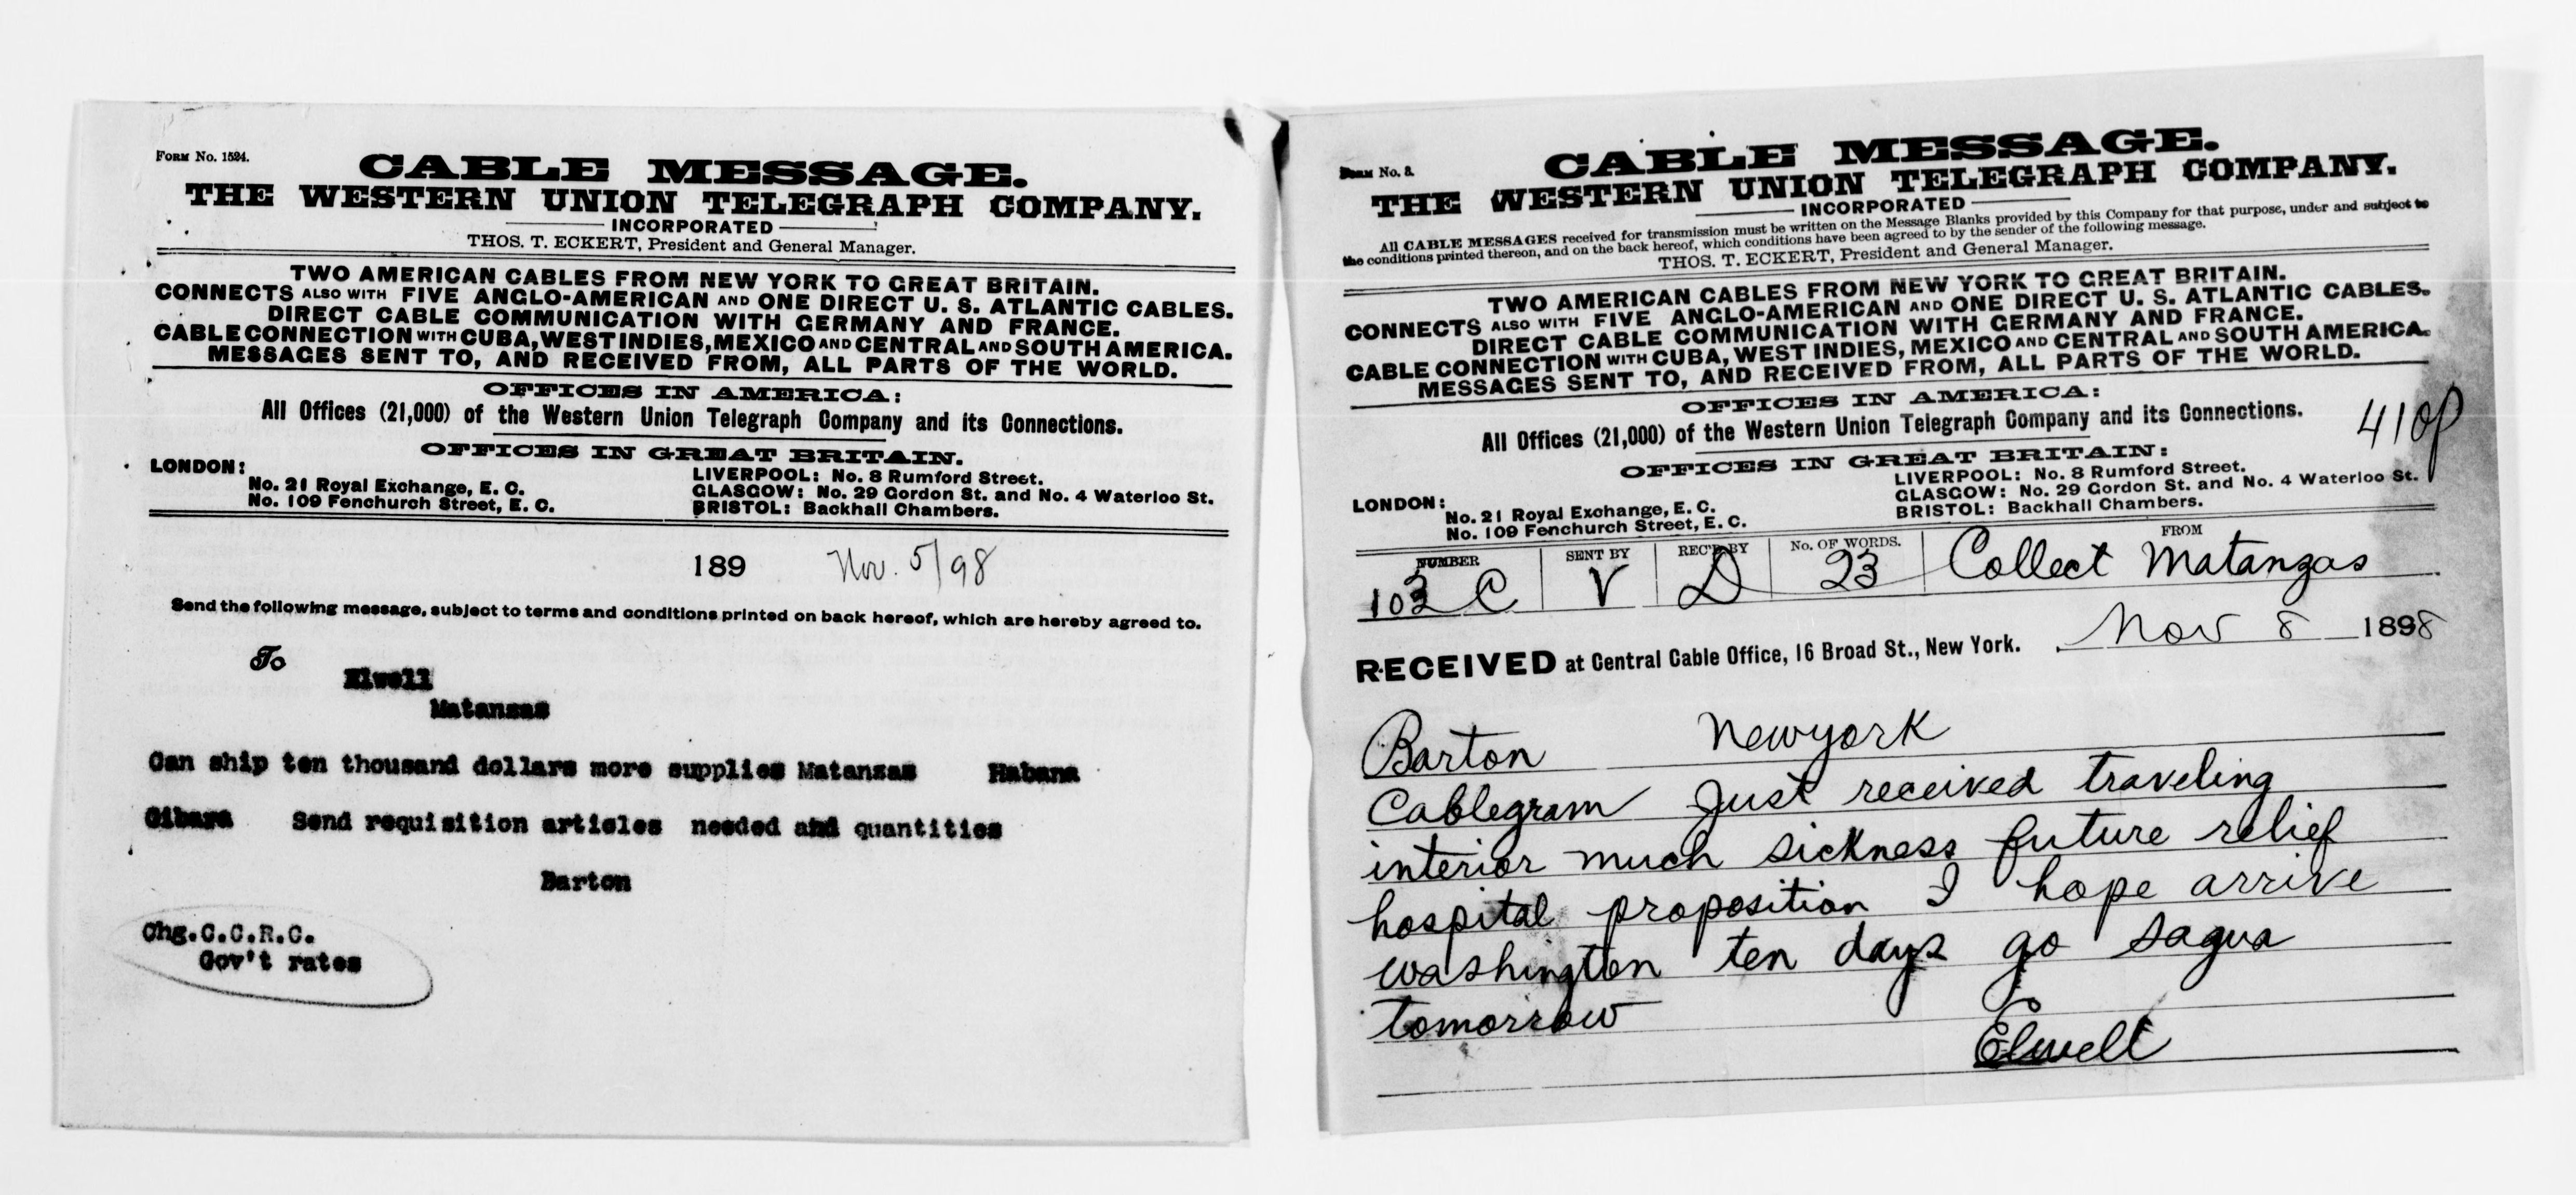 FORM No. 1524.
CABLE MESSAGE.
THE WESTERN UNION TELEGRAPH COMPANY.
INCORPORATED
THOS. T. ECKERT, President and General Manager.
TWO AMERICAN CABLES FROM NEW YORK TO GREAT BRITAIN.
CONNECTS ALSO WITH FIVE ANGLO-AMERICAN AND ONE DIRECT U. S. ATLANTIC CABLES.
DIRECT CABLE COMMUNICATION WITH GERMANY AND FRANCE.
CABLE CONNECTION WITH CUBA, WEST INDIES, MEXICO AND CENTRAL AND SOUTH AMERICA.
MESSAGES SENT TO, AND RECEIVED FROM, ALL PARTS OF THE WORLD.
OFFICES IN AMERICA:
All Offices (21,000) of the Western Union Telegraph Company and its Connections.
OFFICES IN GREAT BRITAIN.
LONDON:
No. 21 Royal Exchange, E. C.
No. 109 Fenchurch Street, E. C.
LIVERPOOL: No. 8 Rumford Street.
GLASGOW: No. 29 Gordon St. and No. 4 Waterloo St.
BRISTOL: Backhall Chambers.
189 Nov. 5/98
Send the following message, subject to terms and conditions printed on back hereof, which are hereby agreed to.
To
Elwell
Matanzas
Can ship ten thousand dollars more supplies Matanzas Habana
Gibara Send requisition articles needed and quantities
Barton
Chg.C.C.R.C.
Gov't rates
FORM No. 8.
CABLE MESSAGE.
THE WESTERN UNION TELEGRAPH COMPANY.
INCORPORATED
All CABLE MESSAGES received for transmission must be written on the Message Blanks provided by this Company for that purpose, under and subject to
the conditions printed thereon, and on the back hereof, which conditions have been agreed to by the sender of the following message.
THOS. T. ECKERT, President and General Manager.
TWO AMERICAN CABLES FROM NEW YORK TO GREAT BRITAIN.
CONNECTS ALSO WITH FIVE ANGLO-AMERICAN AND ONE DIRECT U. S. ATLANTIC CABLES.
DIRECT CABLE COMMUNICATION WITH GERMANY AND FRANCE.
CABLE CONNECTION WITH CUBA, WEST INDIES, MEXICO AND CENTRAL AND SOUTH AMERICA.
MESSAGES SENT TO, AND RECEIVED FROM, ALL PARTS OF THE WORLD.
OFFICES IN AMERICA:
All Offices (21,000) of the Western Union Telegraph Company and its Connections.
410p
OFFICES IN GREAT BRITAIN:
LONDON:
No. 21 Royal Exchange, E. C.
No. 109 Fenchurch Street, E. C.
LIVERPOOL: No. 8 Rumford Street.
GLASGOW: No. 29 Gordon St. and No. 4 Waterloo St.
BRISTOL: Backhall Chambers.
NUMBER SENT BY REC'D BY No. OF WORDS. FROM
103 C V D 23 Collect Matanzas
RECEIVED at Central Cable Office, 16 Broad St., New York. Nov 8 1898
Barton Newyork
Cablegram Just received traveling
interior much sickness future relief
hospital proposition I hope arrive
washington ten days go Sagua
tomorrow
Elwell